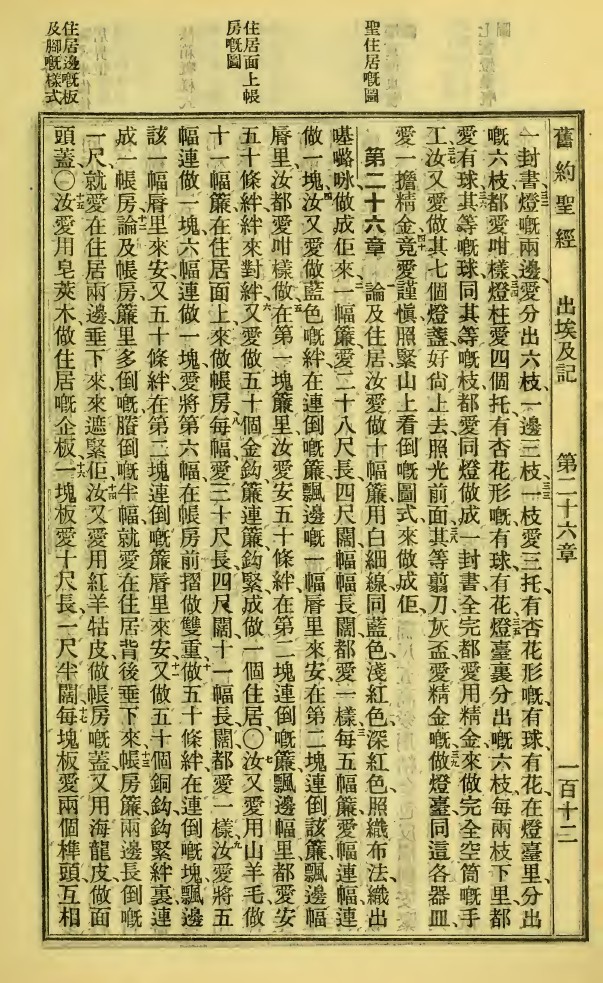 舊約聖經 出埃及記 第二十六章 一百十二
聖住居嘅圖
住居面上帳
房嘅圖
住居邊嘅板
及腳嘅樣式
一封書燈嘅兩邊愛分出六枝一邊三枝一枝愛三托有杏花形嘅有球有花在燈臺里分出
嘅六枝都愛咁樣燈柱愛四個托有杏花形嘅有球有花燈臺裏分出嘅六枝每兩枝下里都
愛有球其等嘅球同其等嘅枝都愛同燈做成一封書全完都愛用精金來做完全空筒嘅手
工汝又愛做其七個燈盞好尙上去照光前面其等翦刀灰盃愛精金嘅做燈臺同這各器皿
愛一擔精金竟愛謹愼照緊山上看倒嘅圖式來做成佢
第二十六章 論及住居汝愛做十幅簾用白細線同藍色淺紅色深紅色照織布法織出
𠼮𠸎咏做成佢來一幅簾愛二十八尺長四尺闊幅幅長闊都愛一樣每五幅簾愛幅連幅連
做一塊汝又愛做藍色嘅絆在連倒嘅簾飄邊嘅一幅脣里來安在第二塊連倒該簾飄邊幅
脣里汝都愛咁樣做在第一塊簾里汝愛安五十條絆在第二塊連倒嘅簾飄邊幅里都愛安
五十條絆絆來對絆又愛做五十個金鈎簾連簾鈎緊成做一個住居〇汝又愛用山羊毛做
十一幅簾在住居面上來做帳房每幅愛三十尺長四尺闊十一幅長闊都愛一樣汝愛將五
幅連做一塊六幅連做一塊愛將第六幅在帳房前摺做雙重做五十條絆在連倒嘅塊飄邊
該一幅脣里來安又五十條絆在第二塊連倒嘅簾脣里來安又做五十個銅鈎鈎緊絆裏連
成一帳房論及帳房簾里多倒嘅賸倒嘅半幅就愛在住居背後垂下來帳房簾兩邊長倒嘅
一尺就愛在住居兩邊垂下來來遮緊佢汝又愛用紅羊牯皮做帳房嘅蓋又用海龍皮做面
頭蓋〇汝愛用皂莢木做住居嘅企板一塊板愛十尺長一尺半闊每塊板愛兩個榫頭互相